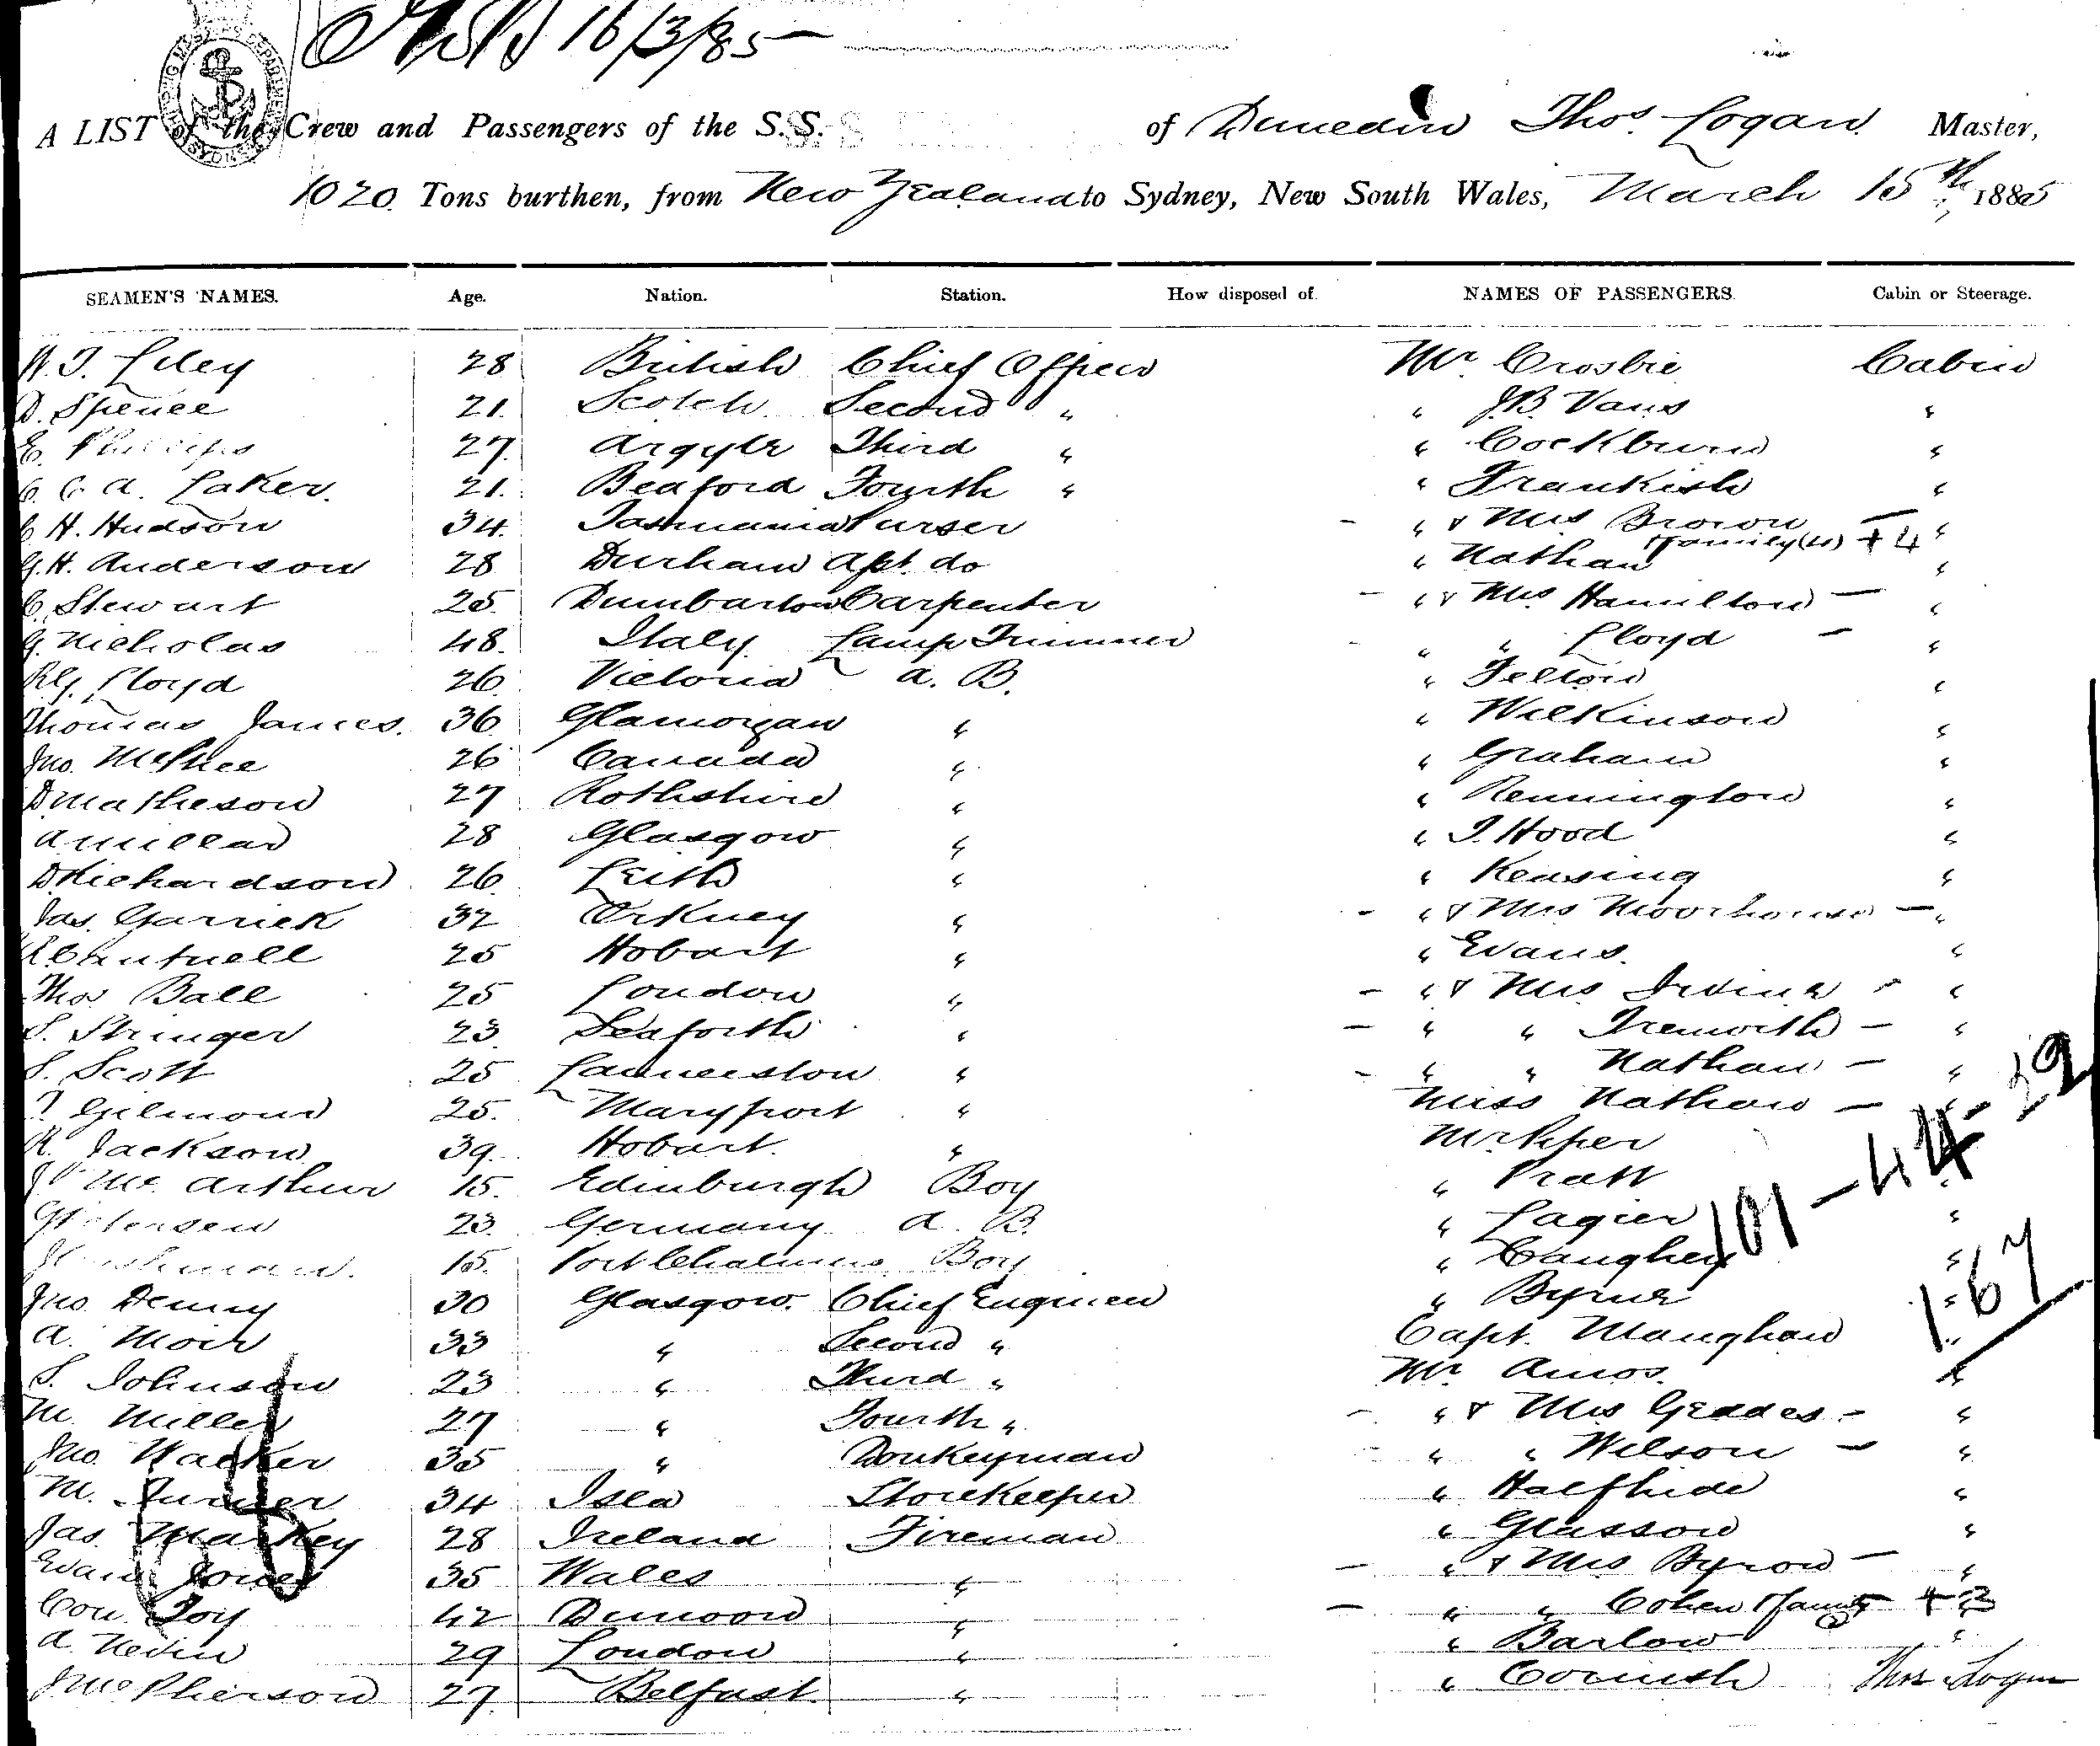 16/3/85
SHIPPING MASTERS DEPARTMENT SYDNEY
A LIST of the Crew and Passengers of the S.S. of Dunedin Thos. Logan Master,
1020 Tons burthen, from New Zealand to Sydney, New South Wales, March 15th, 1885
SEAMEN'S NAMES. Age. Nation. Station. How disposed of. NAMES OF PASSENGERS. Cabin or Steerage.
28 British Chief Officer Mr Crosbie Cabin
D. Spence 21. Scotch Second " " J.B. Vans "
E. Phillips 27. Argyle Third " " Cockburn "
C. C. A. Laker. 21. Beaford Fourth " " Frankish "
C H. Hudson 34. Tasmania Purser - " & Mrs Brown - "
Family (4) + 4
G.H. Anderson 28 Durham Asst. do " Nathan "
C. Stewart 25. Dumbarton Carpenter - " & Mrs Hamilton - "
G. Nicholas 48. Italy Lamp Trimmer - " " Lloyd - "
Lloyd 26. Victoria A. B. " Felton "
Thomas James. 36 Glamorgan " " Wilkinson "
Jno. McPhee 26 Canada " " Graham "
D Matheson 27 Rothshire " " Rennington "
A Millar 28 Glasgow " " J. Hood "
D Richardson 26. Leith " " Keasing "
Jas. Garrick 32 Orkney " - " & Mrs Moorhouse - "
25 Hobart " " Evans. "
Thos Ball 25 London " - " & Mrs Irvine - "
S. Stringer 23. Seaforth " - " " Tremorth - "
S. Scott 25 Launceston " - " " Nathan - "
Gilmour 25. Maryport " Miss Nathan - "
R. Jackson 39. Hobart. " Mr Piper
McArthur 15. Edinburgh Boy " Pratt "
Petersen 23. Germany A. B. " Lagier "
15. Port Chalmers Boy " Caughey "
Jno. Denny 30 Glasgow. Chief Engineer " Byrne "
A. Moir 33 " Second " Capt. Maughan "
S. Johnson 23 " Third " Mr Amos. "
M. Miller 27 " Fourth " - " & Mrs Geddes - "
Jno. Walker 35 " Donkeyman - " " Wilson - "
M. Turner 34 Isla Storekeeper " Halfhide "
Jas. Markey 28 Ireland Fireman " Glasson "
Evan Jones 35 Wales " - " & Mrs Byron - "
Con. Foy 42 Dunoon " - " " Cohen & Family + 3
A. Nevin 29 London " " Barlow "
J McPherson 27. Belfast. " " Cornish Thos Logan
101-44-22
167